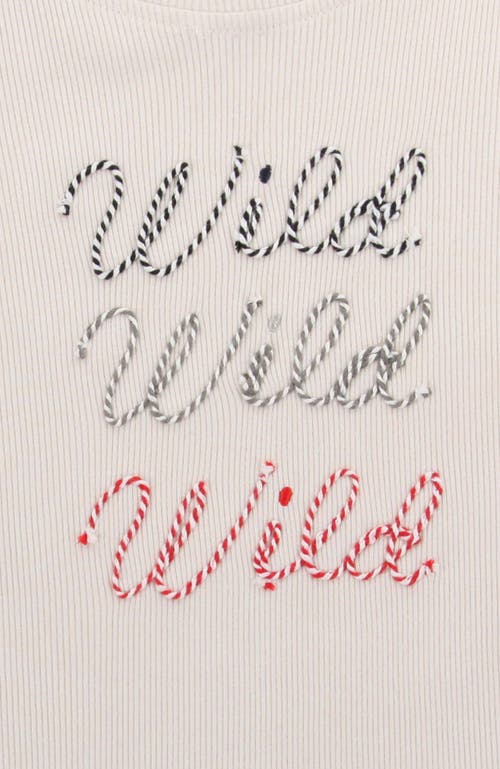 Wild
Wild
Wild